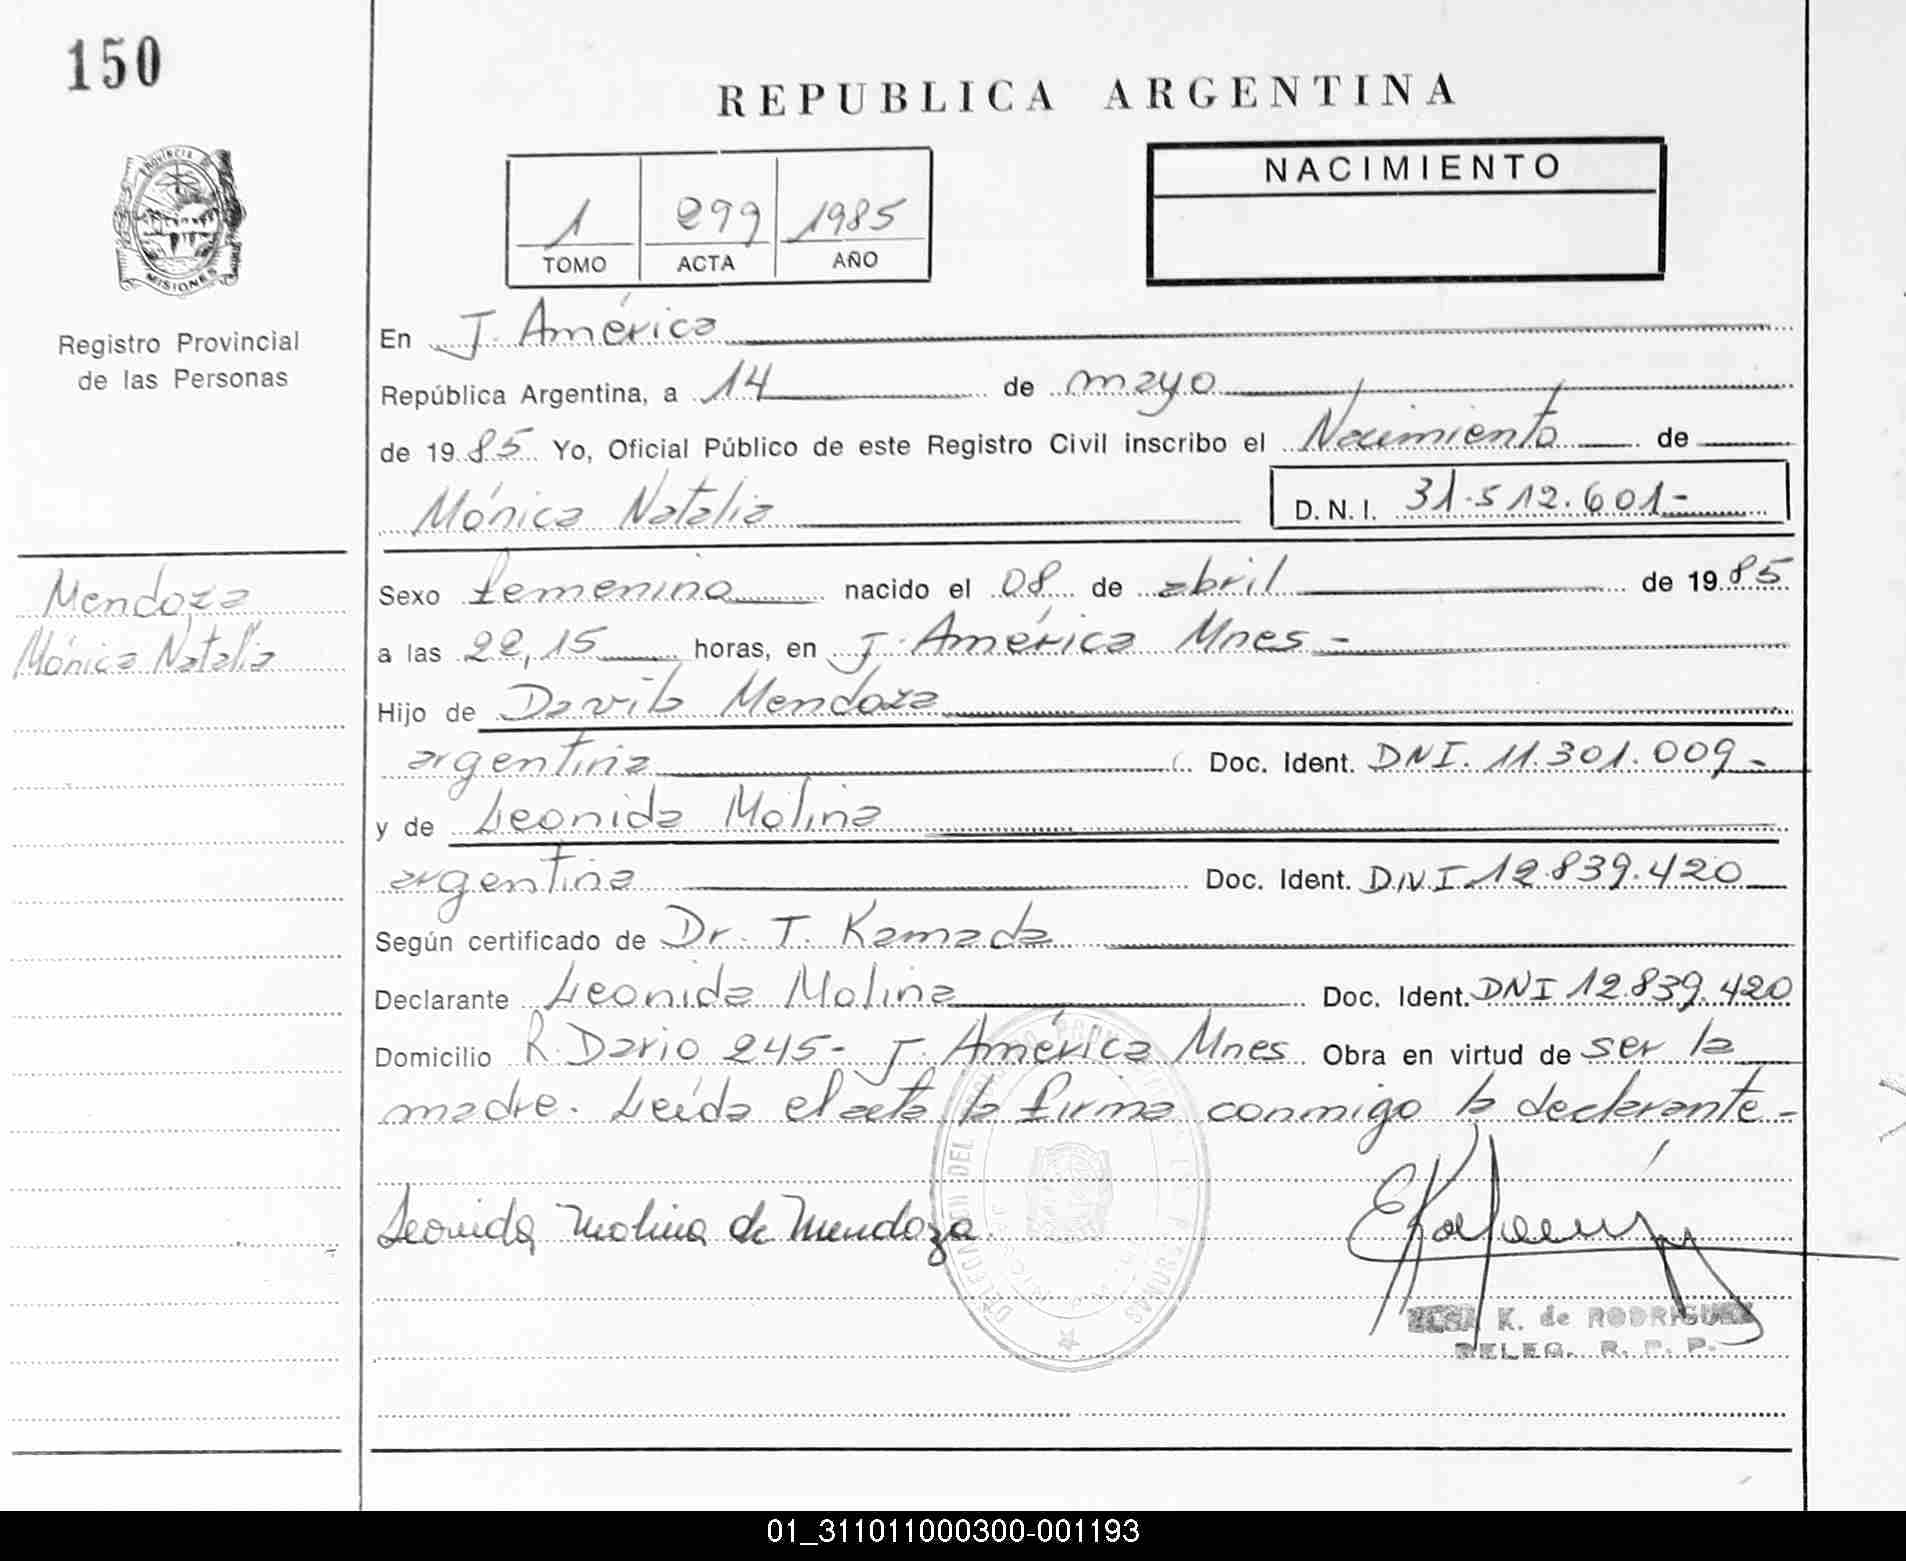 150
REPUBLICA ARGENTINA
PROVINCIA DE
MISIONES
Registro Provincial
de las Personas
1 299 1985
TOMO ACTA AÑO
NACIMIENTO
En J. América
República Argentina, a 14 de mayo
de 1985 Yo, Oficial Público de este Registro Civil inscribo el Nacimiento de
Mónica Natalia D.N.I. 31.512.601-
Mendoza
Mónica Natalia
Sexo femenino nacido el 08 de abril de 1985
a las 22,15 horas, en J. América Mnes -
Hijo de Davila Mendoza
argentina Doc. Ident. DNI. 11.301.009-
y de Leonida Molina
argentina Doc. Ident. DNI 12.839.420
Según certificado de Dr. T. Kamada
Declarante Leonida Molina Doc. Ident. DNI 12.839.420
Domicilio R. Dario 245- J. América Mnes Obra en virtud de ser la
madre. Leída el acta la firma conmigo la declarante-
Leonida Molina de Mendoza
K. de RODRIGUEZ
DELEG. R. P. P.
01_311011000300-001193